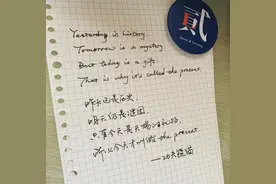 Yesterday is history.
Tomorrow is a mystery
But today is a gift.
That is why it's called the present.
昨天已是历史,
明天仍是谜团,
只有今天是天赐
所以今天才叫做 the present.
——功夫熊猫
貳